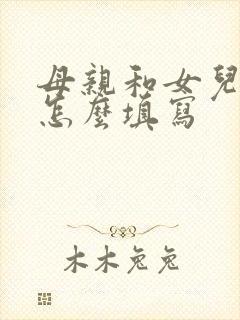 母親和女兒
怎麼填寫
木木兔兔